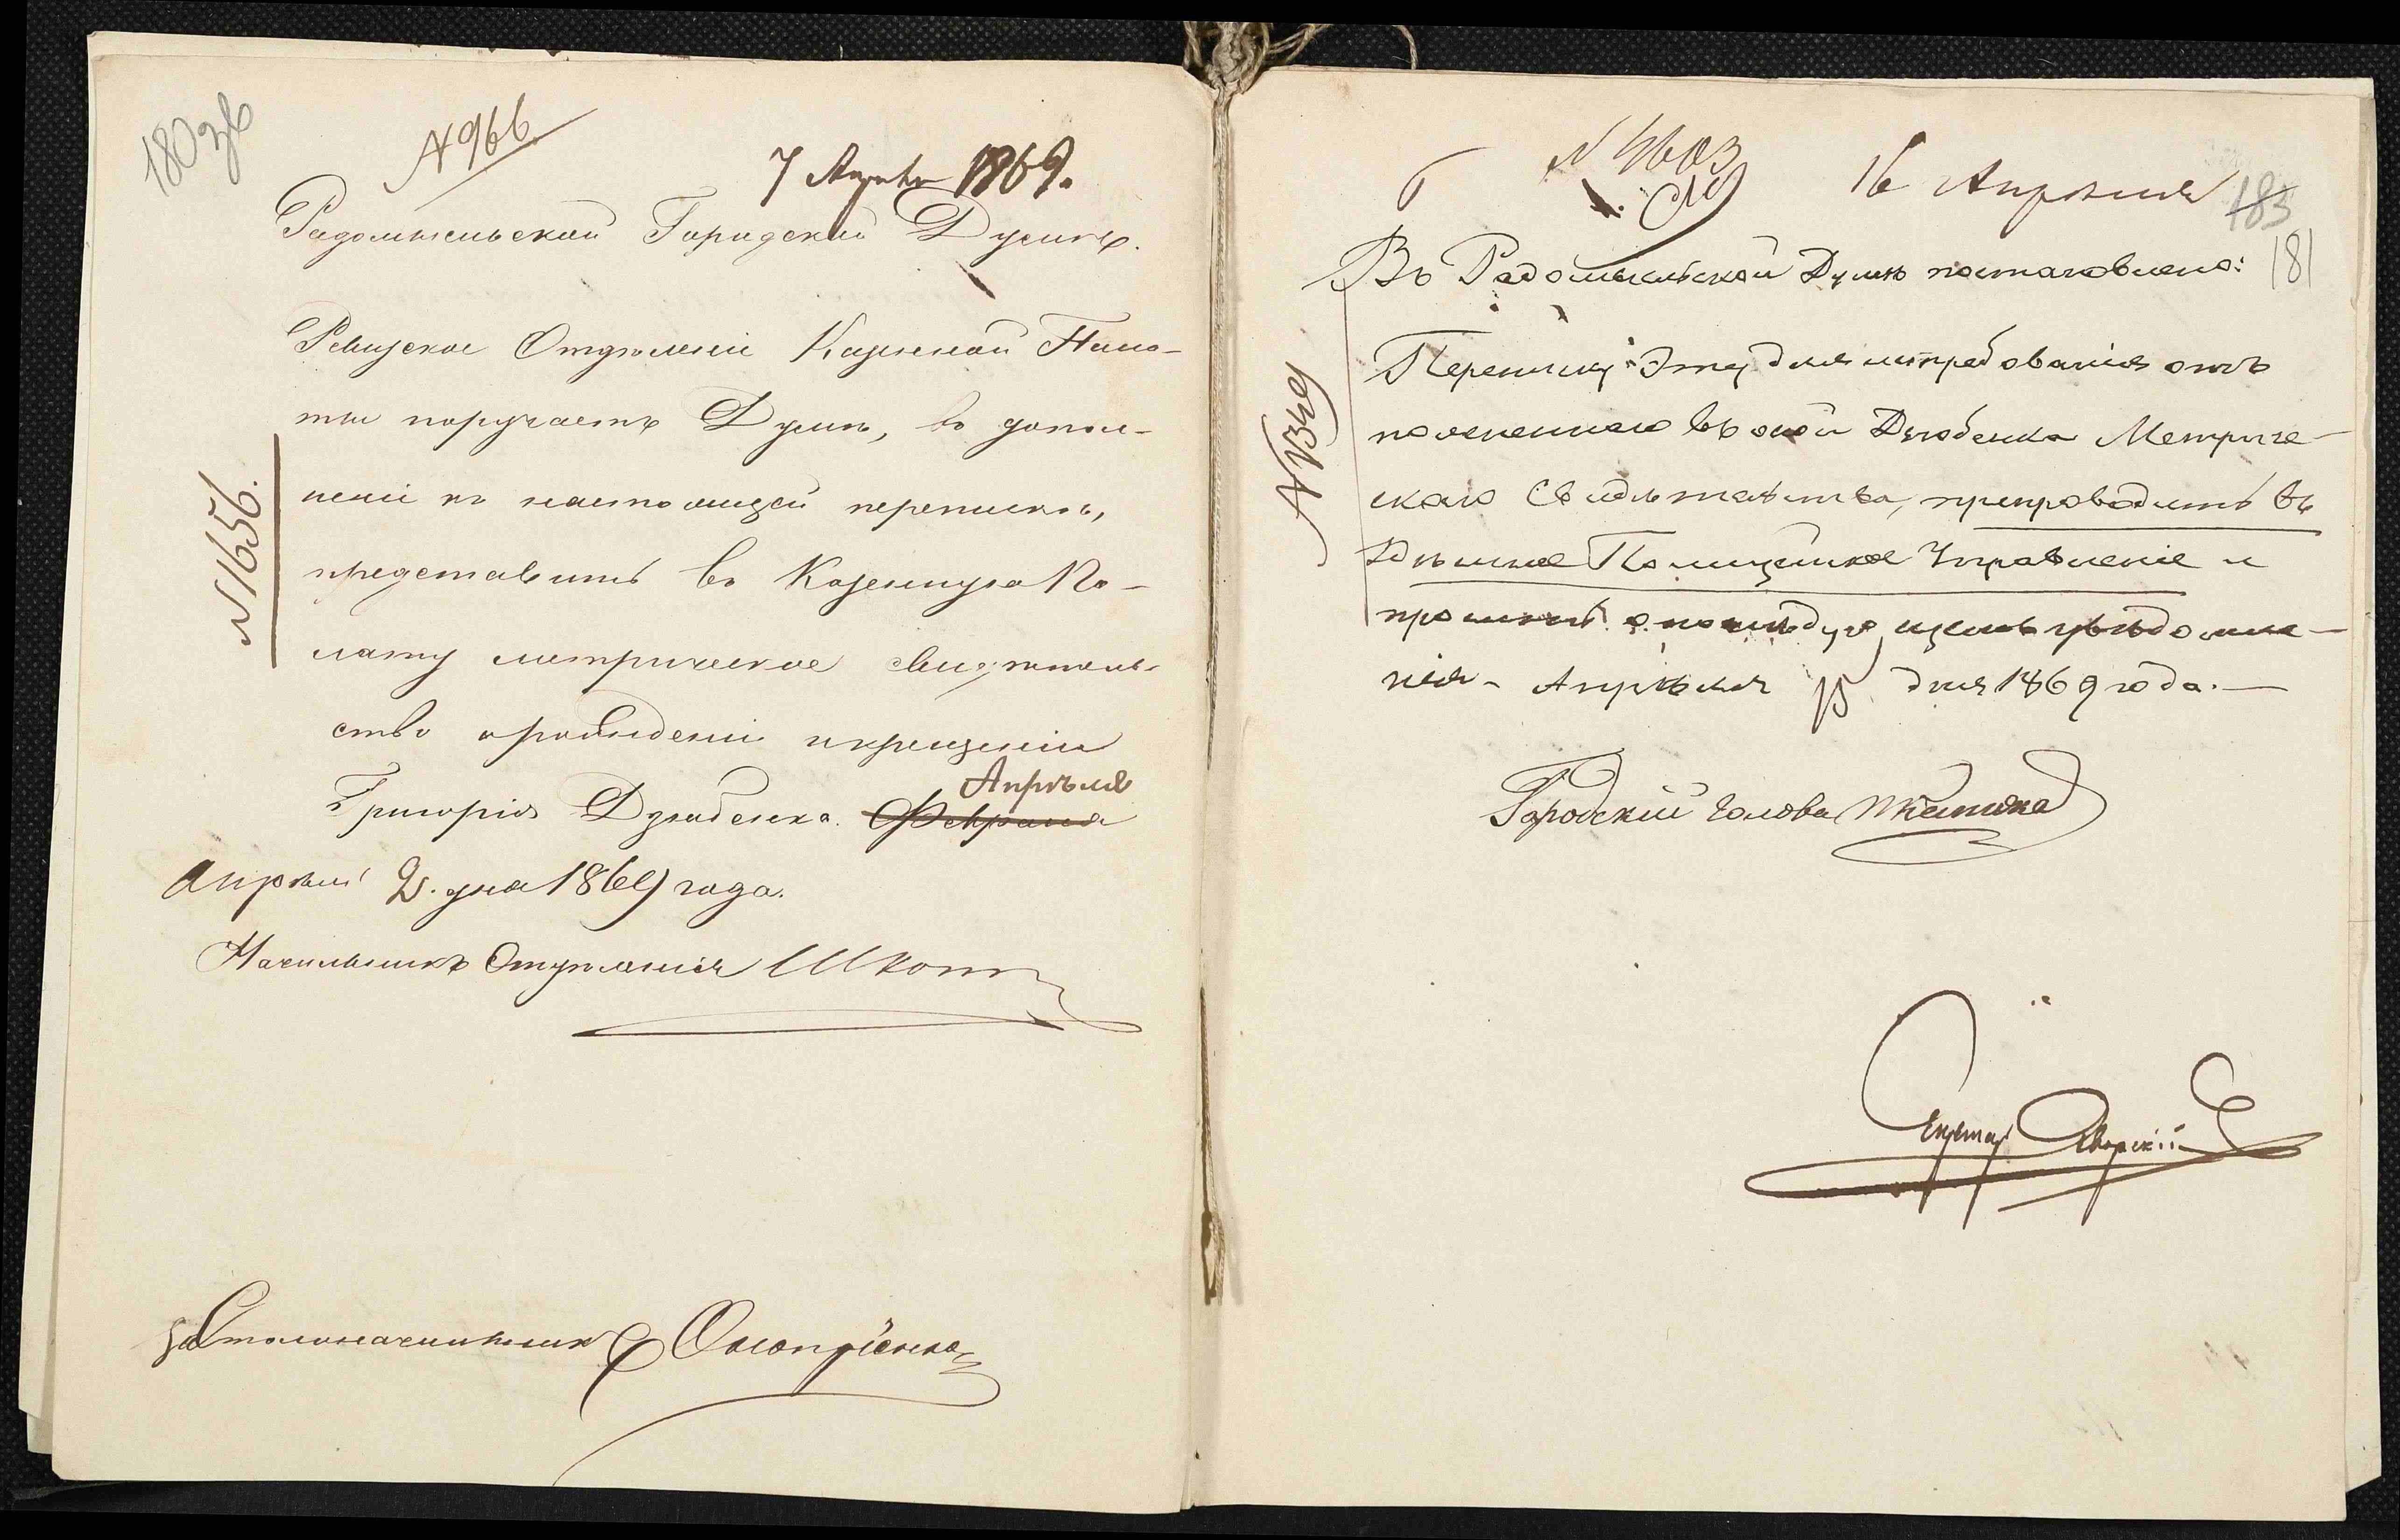 180 зв
№ 966
7 Апреля 1869.
Радомысльской Городской Думѣ.
Ревизское Отдѣленіе Казенной Пала-
ты поручаетъ Думѣ, въ допол-
неніе къ настоящей перепискѣ,
№ 1656.
представить въ Казенную Па-
лату метрическое свидѣтель-
ство о рожденіи и крещеніи
Апрѣля
Григорія Дзюбенка. Февраля
Апрѣля 2. дня 1869 года.
Начальникъ Отдѣленія
за Столоначальника
№ 4603
16 Апрѣля
183
181
Въ Радомысльской Думѣ постановлено:
Переписку эту для истребованія отъ
поясненнаго въ оной Дзюбенка Метриче-
скаго Свидѣтельства, препроводить въ
№ 1349
здѣшнее Полицейское Управленіе и
просить о послѣдующемъ увѣдомле-
нія. Апрѣля 15 дня 1869 года.
Городской голова
Секретарь